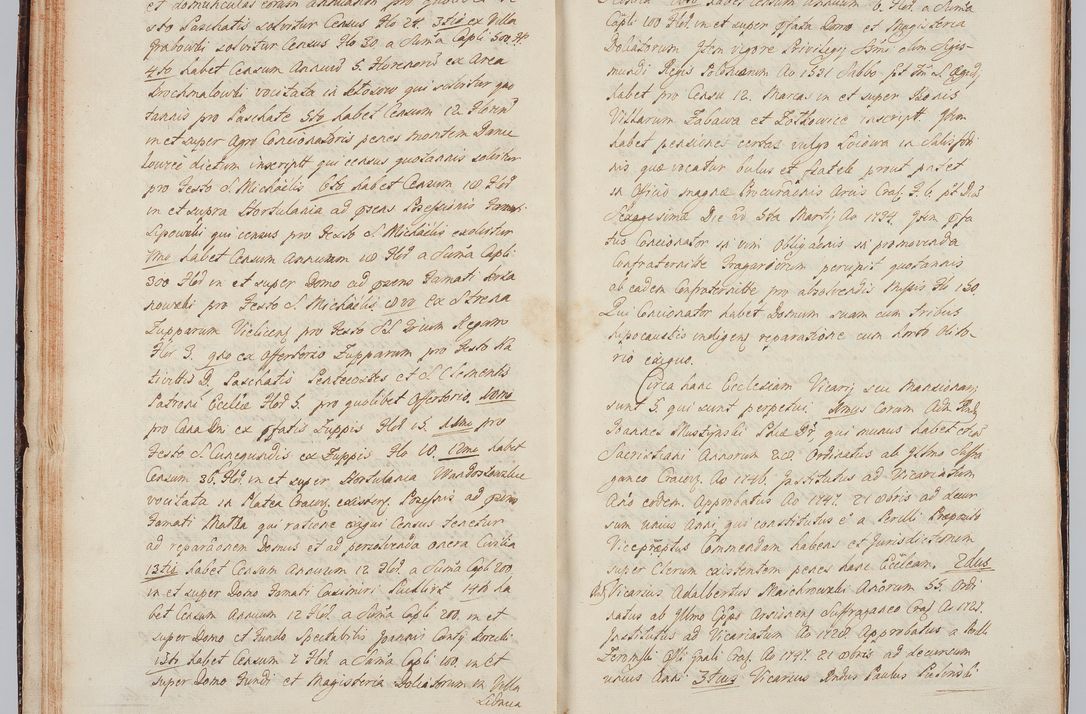 sto Paschatis solvitur Census Flo 28. 3tio ex Villa
Grabowki solvitur Census Flo 30. a Suma Capli 500 Fl.
4to habet Censum Annuũ 5. Florenorũ ex Area
Krochmalowki vocitata in Klosow qui solvitur quo
tannis pro Paschate 5to habet Censum 12 Floren
in et super Agro Concionatoris penes Montem Domu
lowce dictum inscript qui census quotannis solvitur
pro Festo S. Michaelis 6to habet Censum 18 Flor
in et supra Hortulania ad præns Possessionis Famati
Lipowski qui census pro Festo S. Michaelis exolvitur
7mo habet Censum Annuum 18 Flor a Suma Capli
300 Flor in et super Domo ad præns Famati
nowski pro Festo S. Michaelis 8vo Ex Strena
Zupparum Vielicens pro Festo SS. Trium Regum
Flor 3. 9no ex Offertorio Zupparum pro Festo Na
tivittis D. Paschatis Pentecostes et S. Clementis
Patroni Eccliæ Flor 5. pro quolibet Offertorio. 10mo
pro Cæna Dni ex pfatis Zuppis Flor 15. 11mo pro
Festo S. Cunegundis ex Zuppis Flo 10. 12mo habet
Censum 36 Flor in et super Hortulania
vocitata in Platea Cracoviens existens Possessis ad præns
Famati Matla qui ratione exigui Census tenetur
ad reparaõnem Domus et ad persolvenda onera Civilia
13tio habet Censum Annuum 12 Flor a Suma Capli 200
in et super Domo Famati Casimiri 14to ha
bet Censum Annuum 12 Flor a Suma Capli 200. in et
super Domo et Fundo Spectabilis Joannis
15to habet Censum 7 Flor a Suma Capli 100. in et
super Domo Fundi et Magisteria Doliatorum in Villa
Lednica
habet Censum Annuum 6 Flor a Suma
Capli 100 Flor in et super pfata Domo et Magisteria
Doliatorum Item vigore Privilegij Smi olim Sigis-
mundi Regis Poloniarum Ao 1531 Sabbo pt Fm S. Ægidij
habet pro Censu 12. Marcas in et super Bonis
Villarum Zabawa et Zotkowice inscript Item
habet pensiones certas vulgo Soiowa in Salisfodi
nis quæ vocatur bulus et statele prout patet
in Officio magnæ Procuraõnis Arcis Crac
Die 20 5ta Martij Ao 1734. Item pfa
tus Concionator in vim Obligaõnis in promovenda
Confraternitte Tragardorum percipit quotannis
ab eadem Confraternitte pro absolvendis Missis Flo 130.
Qui Concionator habet Domum suam cum tribus
hipocaustis indigens reparatione cum horto olito-
rio exiguo.
Circa hanc Ecclesiam Vicarij seu Mansionarij
sunt 5. qui sunt perpetui. 1mus eorum Adm Rndus
Joannes Mustynski Phiæ Dr qui munus habet etiã
Sacristiani Annorum 28. Ordinatus ab Illmo Suffra
ganeo Cracoviens Ao 1746. Institutus ad Vicariatum
Ano eodem. Approbatus Ao 1747. 21 8bris ad decur
sum unius Anni, qui constitutus e a Perilli Præposito
Vicepræptus Commendam habens et Jurisdictionem
super Clerum existentem penes hanc Eccleam. 2dus
Vicarius Adalbertus Maichrowski Anorum 55. Ordi
natus ab Illmo Eppo Arsionens Suffraganeo Crac Ao 1727.
Institutus ad Vicariatum Ao 1728 Approbatus a Perilli
Zeromski Offli Gnali Crac. Ao 1747. 21 8bris ad decursum
unius Anni. 3tius Vicarius Rndus Paulus